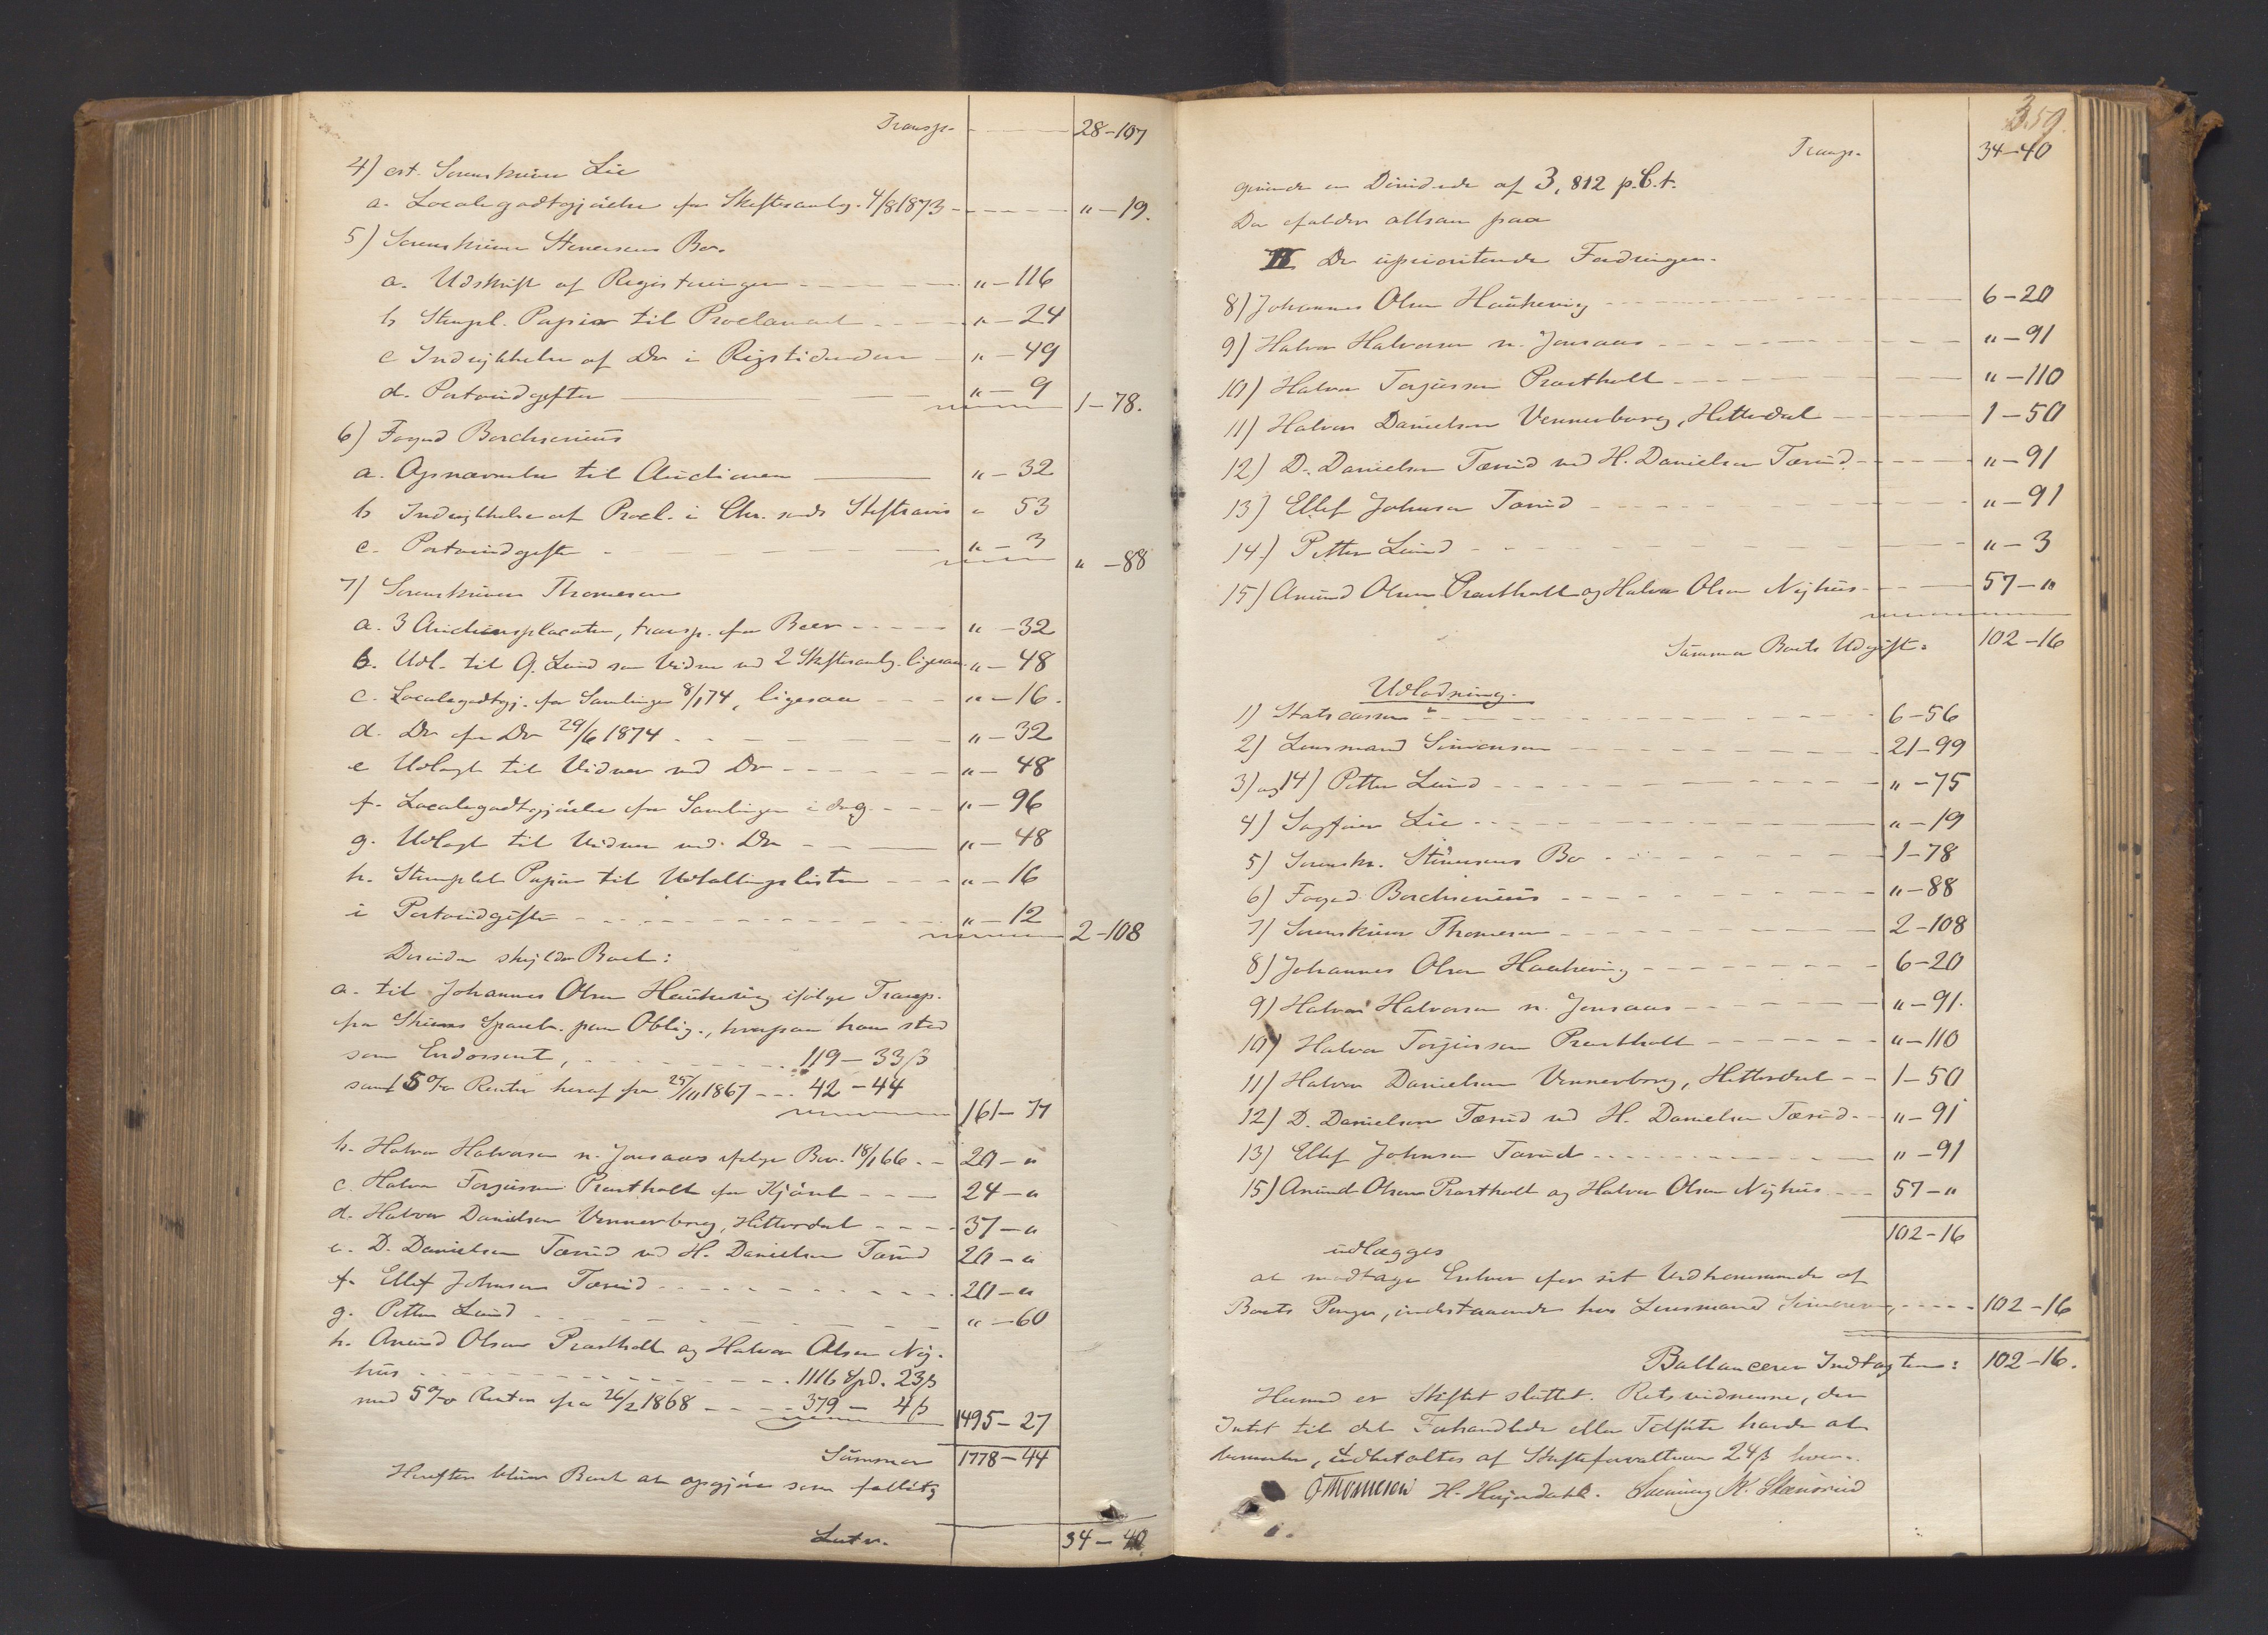 Transp. 28-107
4) cst. Sorenskriver Lie
a. Localegodtgjörelse for Skiftesamlg. 4/8 1873 " - 19.
5) Sorenskriver Stenersens Bo.
a. Udskrift af Registreringen " - 116
b Stempl. Papir til Proclamaet " - 24
c Indrykkelse af Do i Rigstidenden " - 49
d. Portoudgifter " - 9 1-78.
6) Foged Borchsenius
a. Opnævnelse til Auctionen " - 32
b Indrykkelse af Procl. i Chr.sands Stiftsavis " 53
c. Portoudgifter " - 3 " - 88
7) Sorenskriver Thomesen
a. 3 Auctionsplacater, transp. for Boer " - 32
b. Udl. til G. Lund som Vidne ved 2 Skiftesamlg. ligesaa " - 48
c. Localegodtgj. for Samlingen 8/1 74, ligesaa " - 16.
d. Do for Do 29/6 1874 " - 32
e Udlagt til Vidner ved Do " - 48
f. Localegodtgjörelse for Samlingen i dag " - 96
g. Udlagt til Vidner ved Do " - 48
h. Stemplet Papir til Utallingslisten " - 16
i Portoudgifter " - 12 2-108
Desuden skylder Boet:
a. til Johannes Olsen Haukevig ifölge Transp.
fra Skiens Spareb. paa Oblig., hvorpaa han stod
som Endossent, 119 - 33 ß
samt 5 % Renter heraf fra 25/11 1867 42 - 44
161 - 77
b. Halvor Halvorsen n. Jonsaas ifölge Bev. 18/1 66 20 - "
c. Halvor Torjusen Præstholt for Kjörsel 24 - "
d. Halvor Danielsen Vennerborg, Hitterdal 37 - "
e. D. Danielsen Tærud ved H. Danielsen Tærud 20 - "
f. Ellef Johnsen Tærud 20 - "
g. Petter Lund " - 60
h. Anund Olsen Præstholt og Halvor Olsen Ny-
hus 1116 Spd. 23 ß
med 5 % Renter fra 26/2 1868 379 - 4 ß
1495 - 27
Summa 1778 - 44
Herefter bliver Boet at opgjöre som fallit,
Latr. 34 - 40
359.
Transp. 34-40
givende en Dividende af 3,812 p.C.t.
Der falder altsaa paa
II De uprioriterede Fordringer.
8) Johannes Olsen Haukevig 6-20
9) Halvor Halvorsen n. Jonsaas " - 91
10) Halvor Torjussen Præstholt " - 110
11) Halvor Danielsen Vennerborg, Hitterdal 1-50
12) D. Danielsen Tærud ved H. Danielsen Tærud " - 91
13) Ellef Johnsen Tærud " - 91
14) Petter Lund " - 3
15) Anund Olsen Præstholt og Halvor Olsen Nyhus 57 - "
Summa Boets Udgift: 102-16
Udlodning.
1) Statscassen 6-56
2) Lensmand Simonsen 21-99
3) og 14) Petter Lund " - 75
4) Sagförer Lie " - 19
5) Sorenskr. Stenersens Bo 1-78
6) Foged Borchsenius " - 88
7) Sorenskriver Thomesen 2-108
8) Johannes Olsen Haukevig 6-20
9) Halvor Halvorsen n. Jonsaas " - 91.
10) Halvor Torjussen Præstholt " - 110
11) Halvor Danielsen Vennerborg, Hitterdal 1-50
12) D. Danielsen Tærud ved H. Danielsen Tærud " - 91
13) Ellef Johnsen Tærud " - 91
15) Anund Olsen Præstholt og Halvor Olsen Nyhus 57 - "
102-16
udlægges
at modtage Enhver for sit Vedkommende af
Boets Penge, indestaaende hos Lensmand Simonsen, 102-16
Ballancerer Indtægten: 102-16.
Hermed er Skiftet sluttet. Retsvidnerne, der
Intet til det Forhandlede eller Tilförte havde at
bemærke, udbetaltes af Skifteforvalteren 24 ß hver.
GThomesen H. Hejendahl. K. Stensrud